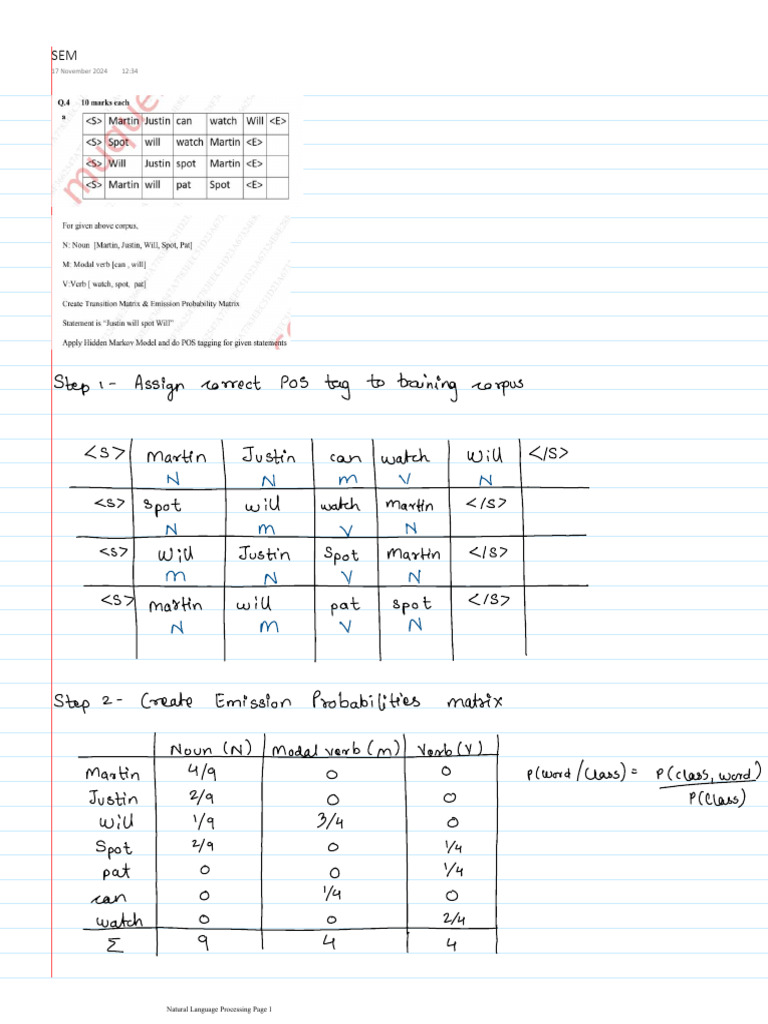 SEM
17 November 2024 12:34
Q.4 10 marks each
a <S> Martin Justin can watch Will <E>
<S> Spot will watch Martin <E>
<S> Will Justin spot Martin <E>
<S> Martin will pat Spot <E>
For given above corpus,
N: Noun [Martin, Justin, Will, Spot, Pat]
M: Modal verb [can , will]
V:Verb [ watch, spot, pat]
Create Transition Matrix & Emission Probability Matrix
Statement is “Justin will spot Will”
Apply Hidden Markov Model and do POS tagging for given statements
Step 1 - Assign correct POS tag to training corpus
<S> Martin Justin can watch will </S>
N N m V N
<S> Spot will watch Martin </S>
N m V N
<S> will Justin Spot Martin </S>
m N V N
<S> Martin will pat spot </S>
N m V N
Step 2 - Create Emission Probabilities matrix
Noun (N) Modal verb (m) Verb (V)
Martin 4/9 0 0 P(word/class) = P(class, word)
Justin 2/9 0 0 P(class)
will 1/9 3/4 0
Spot 2/9 0 1/4
pat 0 0 1/4
can 0 1/4 0
watch 0 0 2/4
Σ 9 4 4
Natural Language Processing Page 1